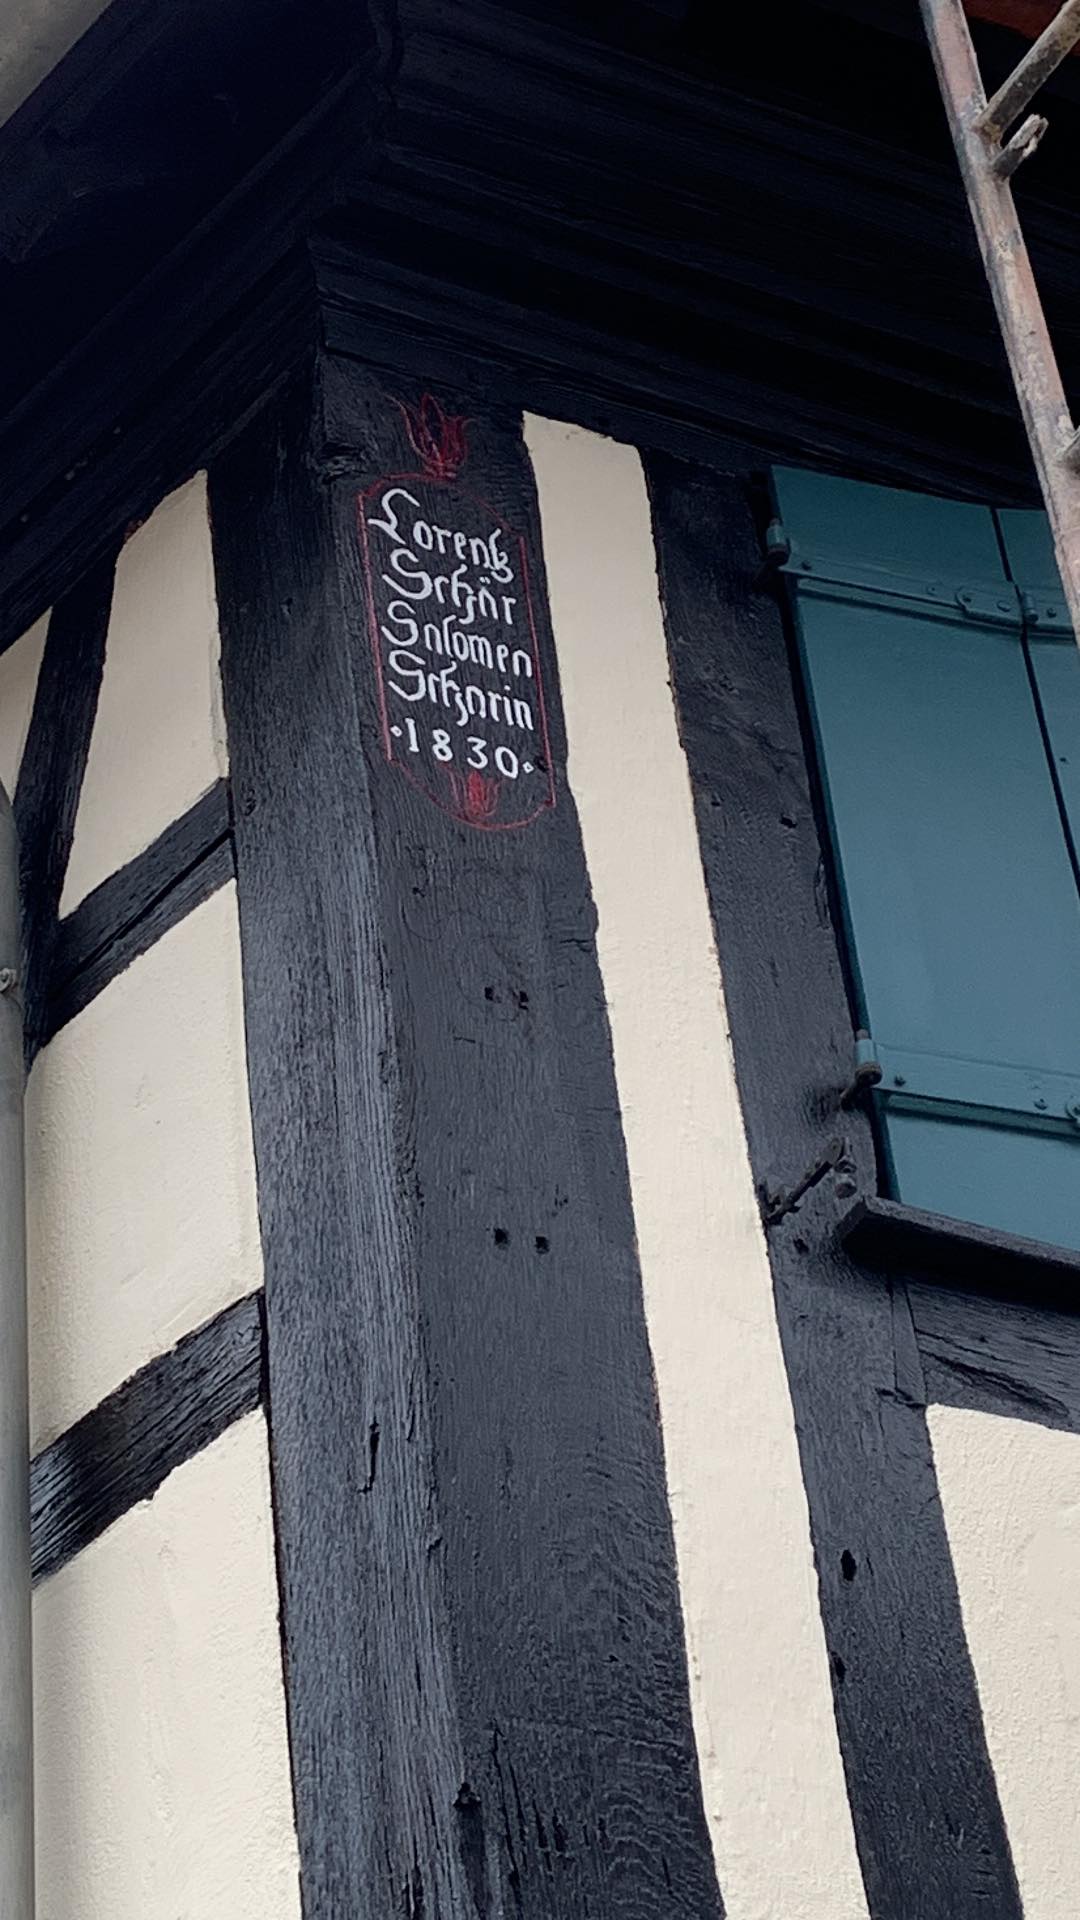 Lorentz
Schär
Salomen
Scharin
·1830·